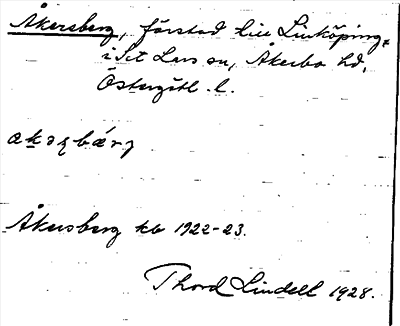 Åkersberg, förstad till Linköping,
i S:t Lars sn, Åkerbo hd,
Östergötl. l.
Åkersberg kb 1922-23.
Thord Lindell 1928.